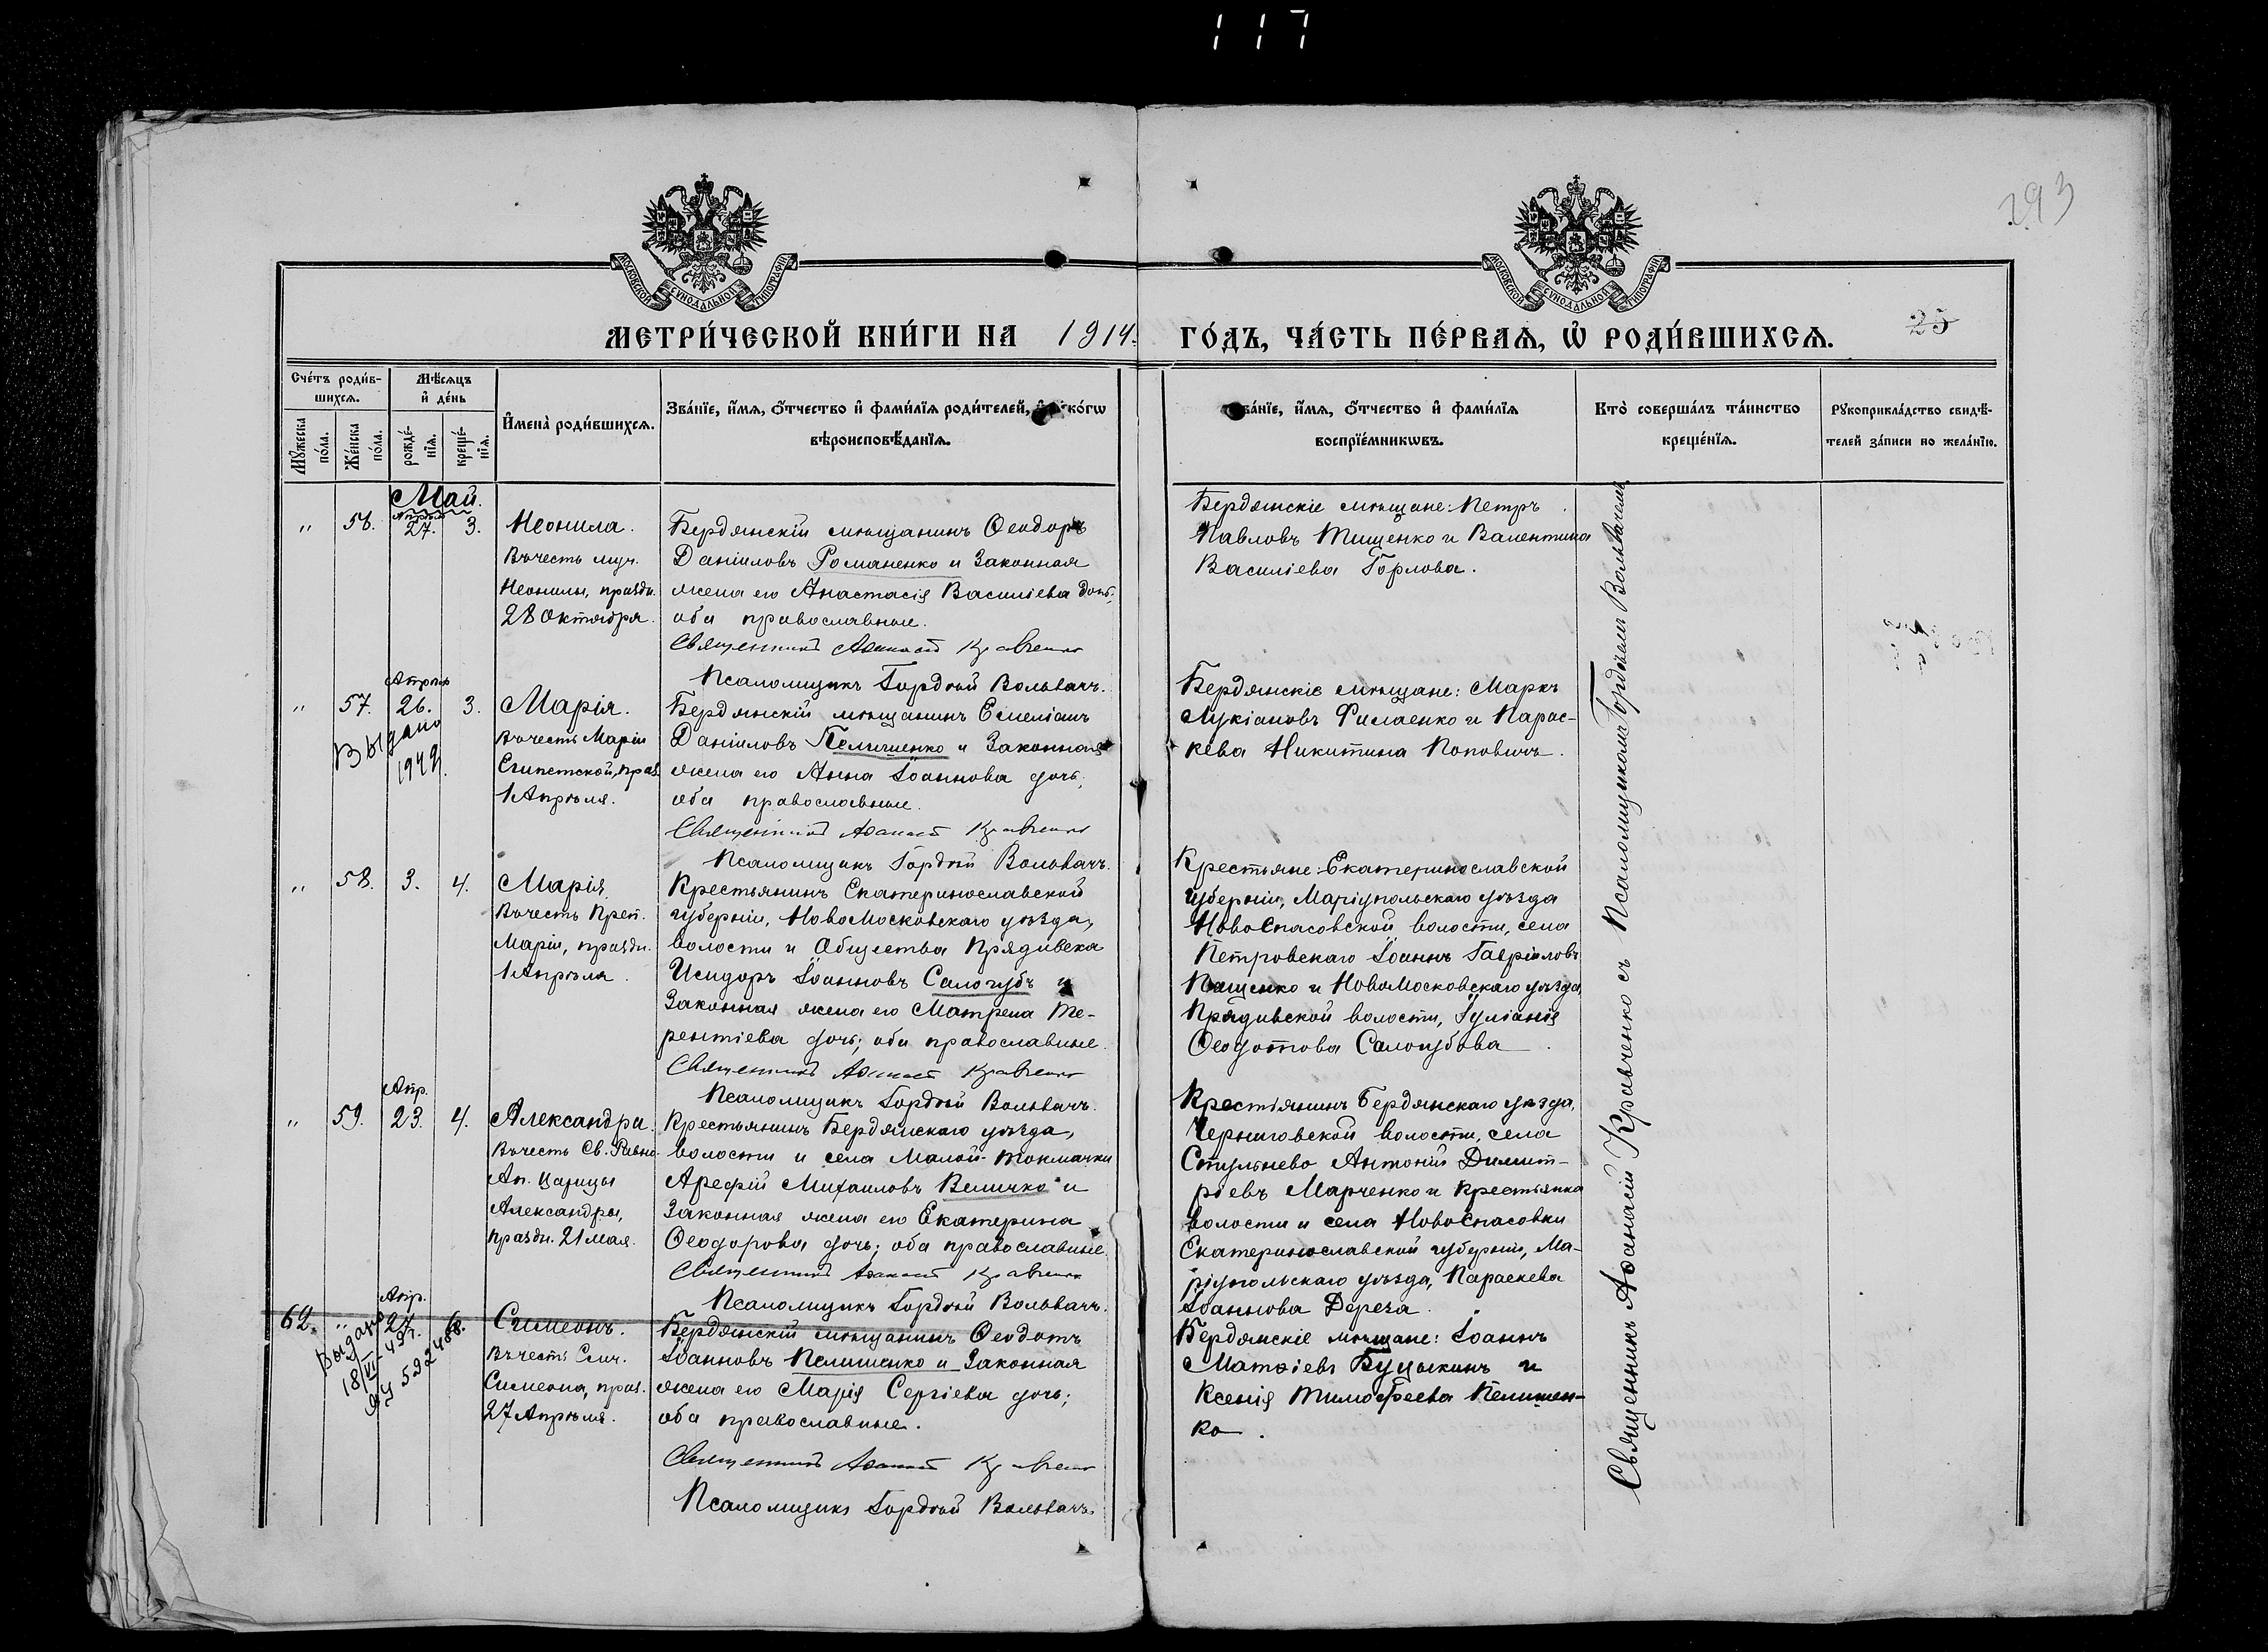 117
293
МОСКОВСКОЙ СУНОДАЛЬНОЙ ТИПОГРАФІИ
МОСКОВСКОЙ СУНОДАЛЬНОЙ ТИПОГРАФІИ
МЕТРИ́ЧЕСКОЙ КНИ́ГИ НА 1914.
ГО́ДЪ, ЧА́СТЬ ПЕ́РВАѦ, Ѡ РОДИ́ВШИХСѦ.
25
Сче́тъ роди́в-
шихсѧ.
Мѣ́сѧцъ
и҆ де́нь
Мꙋ́жеска
по́ла.
Же́нска
по́ла.
рожде́-
нїѧ.
креще́-
нїѧ.
И҆мена̀ роди́вшихсѧ.
Зва́нїе, и҆́мѧ, ѻ҆́тчество и҆ фами́лїѧ роди́телей, и҆ како́гѡ
вѣроисповѣ́данїѧ.
Зва́нїе, и҆́мѧ, ѻ҆́тчество и҆ фами́лїѧ
воспрїе́мникѡвъ.
Кто̀ соверша́лъ та́инство
креще́нїѧ.
Рꙋкоприкла́дство свидѣ́-
телей за́писи по жела́нїю.
Май.
Апрѣля
" 56. 27. 3.
Неонила.
Въ честь муч.
Неонилы, праздн.
28 Октября.
Бердянскій мѣщанинъ Ѳеодоръ
Даніиловъ Романенко и Законная
жена его Анастасія Василіева дочь,
оба православные.
Священникъ Аѳанасій Кравченко
Псаломщикъ Гордѣй Вольвачъ.
Бердянскіе мѣщане: Петръ
Павловъ Тищенко и Валентина
Василіева Горлова.
Апрѣля
" 57. 26. 3.
Выдано
1942.
Марія.
Въ честь Маріи
Египетской, праз.
1 Апрѣля.
Бердянскій мѣщанинъ Емеліанъ
Даніиловъ Пелишенко и Законная
жена его Анна Іоаннова дочь;
оба православные.
Священникъ Аѳанасій Кравченко
Псаломщикъ Гордѣй Вольвачъ.
Бердянскіе мѣщане: Маркъ
Лукіановъ Филаенко и Парас-
кева Никитина Поповичъ.
" 58. 3. 4.
Марія.
Въ честь Преп.
Маріи, праздн.
1 Апрѣля.
Крестьянинъ Екатеринославской
губерніи, НовоМосковскаго уѣзда,
волости и Общества Прядивска
Исидоръ Іоанновъ Салогубъ и
Законная жена его Матрена Те-
рентіева дочь; оба православные.
Священникъ Аѳанасій Кравченко
Псаломщикъ Гордѣй Вольвачъ.
Крестьяне: Екатеринославской
губерніи, Маріупольскаго уѣзда
НовоСпасовской волости, села
Петровскаго Іоаннъ Гавріиловъ
Пащенко и НовоМосковскаго уѣзда,
Прядивской волости, Іуліанія
Ѳеодотова Салогубова.
Апр.
" 59. 23. 4.
Александра.
Въ честь Св. Равно-
Ап. Царицы
Александры,
праздн. 21 мая.
Крестьянинъ Бердянскаго уѣзда,
волости и села Малой-Токмачки
Арефій Михаиловъ Величко и
Законная жена его Екатерина
Ѳеодорова дочь; оба православные.
Священникъ Аѳанасій Кравченко
Псаломщикъ Гордѣй Вольвачъ.
Крестіянинъ Бердянскаго уѣзда,
Черниговской волости, села
Стульнево Антоній Димит-
ріевъ Марченко и крестьянка
волости и села НовоСпасовки
Екатеринославской губерніи, Ма-
ріупольскаго уѣзда, Параскева
Іоаннова Дереза.
Апр.
62. " 27. 6.
Выдано
18/VI-49г.
ЯУ 592468.
Сѵмеонъ.
Въ честь Смч.
Симеона, праз.
27 Апрѣля.
Бердянскій мѣщанинъ Ѳеодотъ
Іоанновъ Пелишенко и Законная
жена его Марія Сергіева дочь;
оба православные.
Священникъ Аѳанасій Кравченко
Псаломщикъ Гордѣй Вольвачъ.
Бердянскіе мѣщане: Іоаннъ
Матѳіевъ Буцыкинъ и
Ксенія Тимоѳеева Пелишен-
ко.
Священникъ Аѳанасій Кравченко съ Псаломщикомъ Гордѣемъ Вольвачемъ